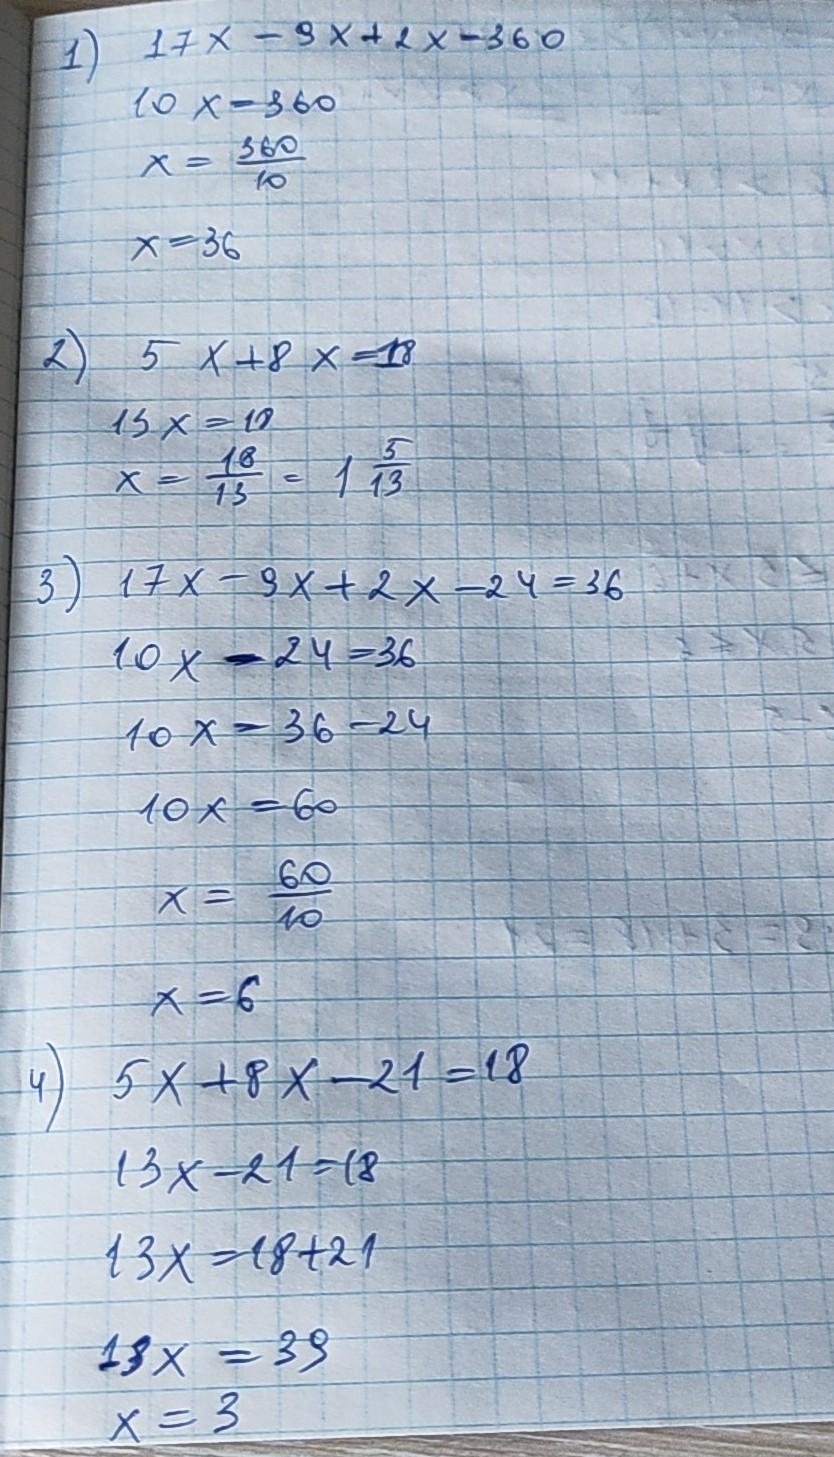 1) 17x - 9x + 2x - 360
10x - 360
x = 360/10
x = 36
2) 5x + 8x = 18
13x = 18
x = 18/13 = 1 5/13
3) 17x - 9x + 2x - 24 = 36
10x - 24 = 36
10x - 36 - 24
10x = 60
x = 60/10
x = 6
4) 5x + 8x - 21 = 18
13x - 21 = 18
13x = 18 + 21
13x = 39
x = 3